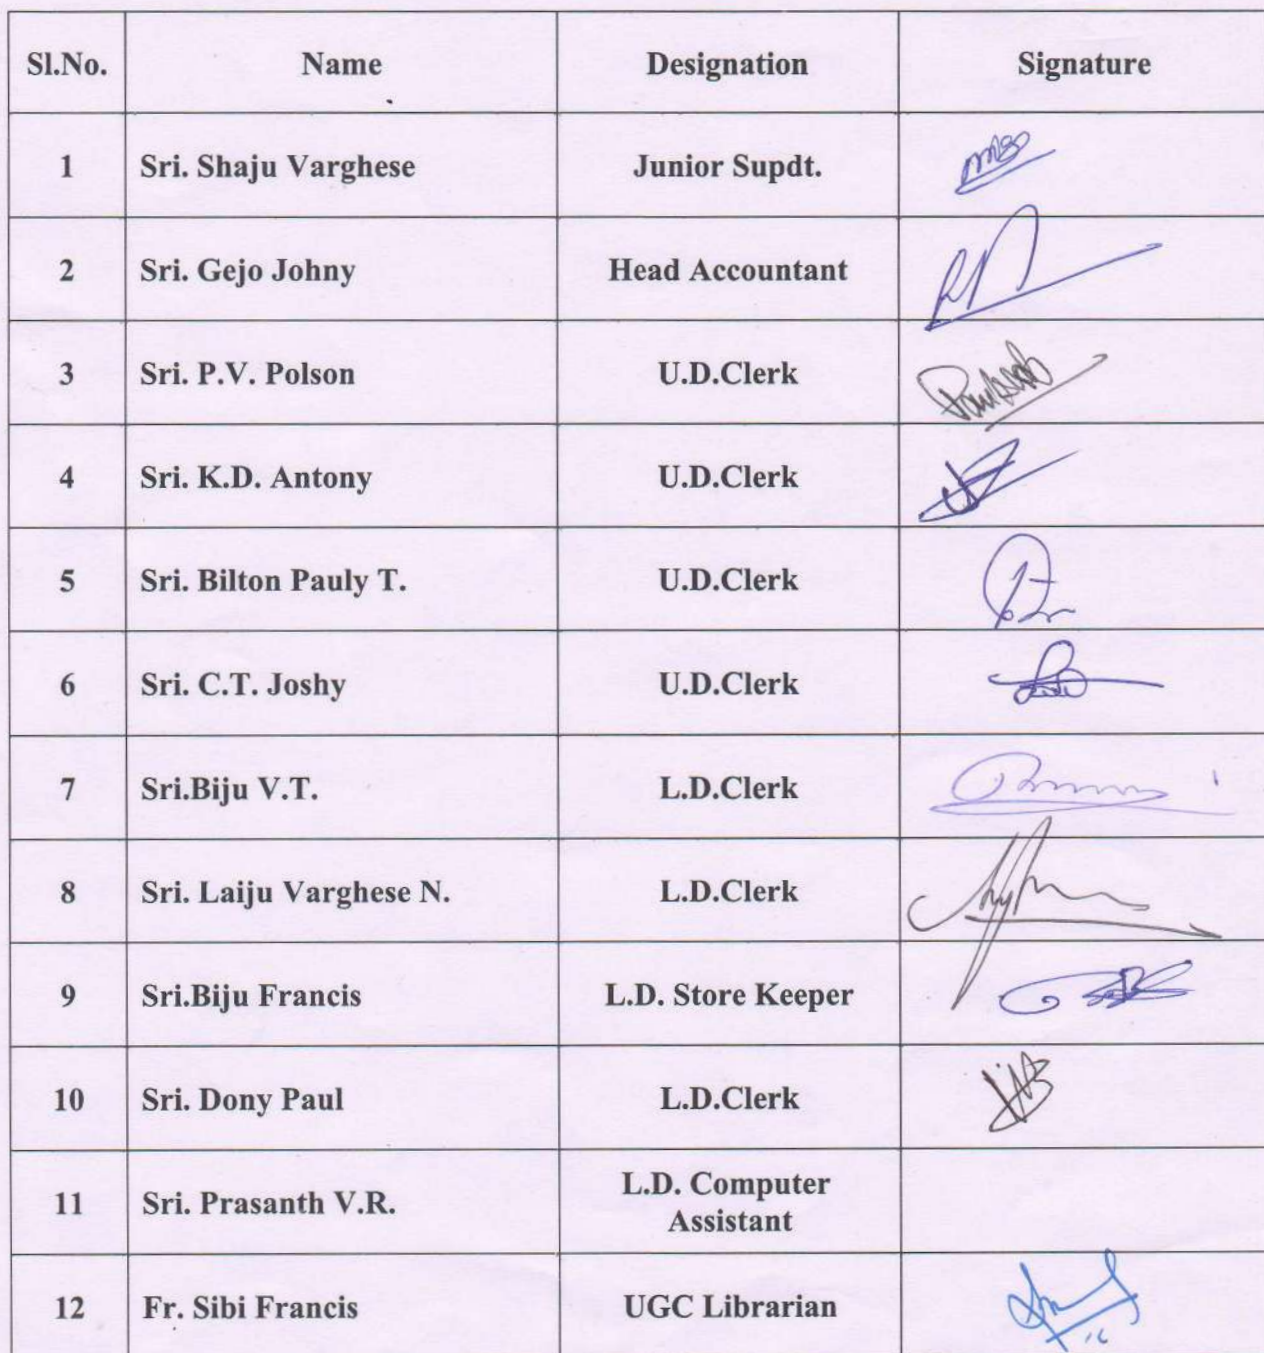 Sl.No. Name Designation Signature
1 Sri. Shaju Varghese Junior Supdt.
2 Sri. Gejo Johny Head Accountant
3 Sri. P.V. Polson U.D.Clerk
4 Sri. K.D. Antony U.D.Clerk
5 Sri. Bilton Pauly T. U.D.Clerk
6 Sri. C.T. Joshy U.D.Clerk
7 Sri.Biju V.T. L.D.Clerk
8 Sri. Laiju Varghese N. L.D.Clerk
9 Sri.Biju Francis L.D. Store Keeper
10 Sri. Dony Paul L.D.Clerk
11 Sri. Prasanth V.R. L.D. Computer
Assistant
12 Fr. Sibi Francis UGC Librarian